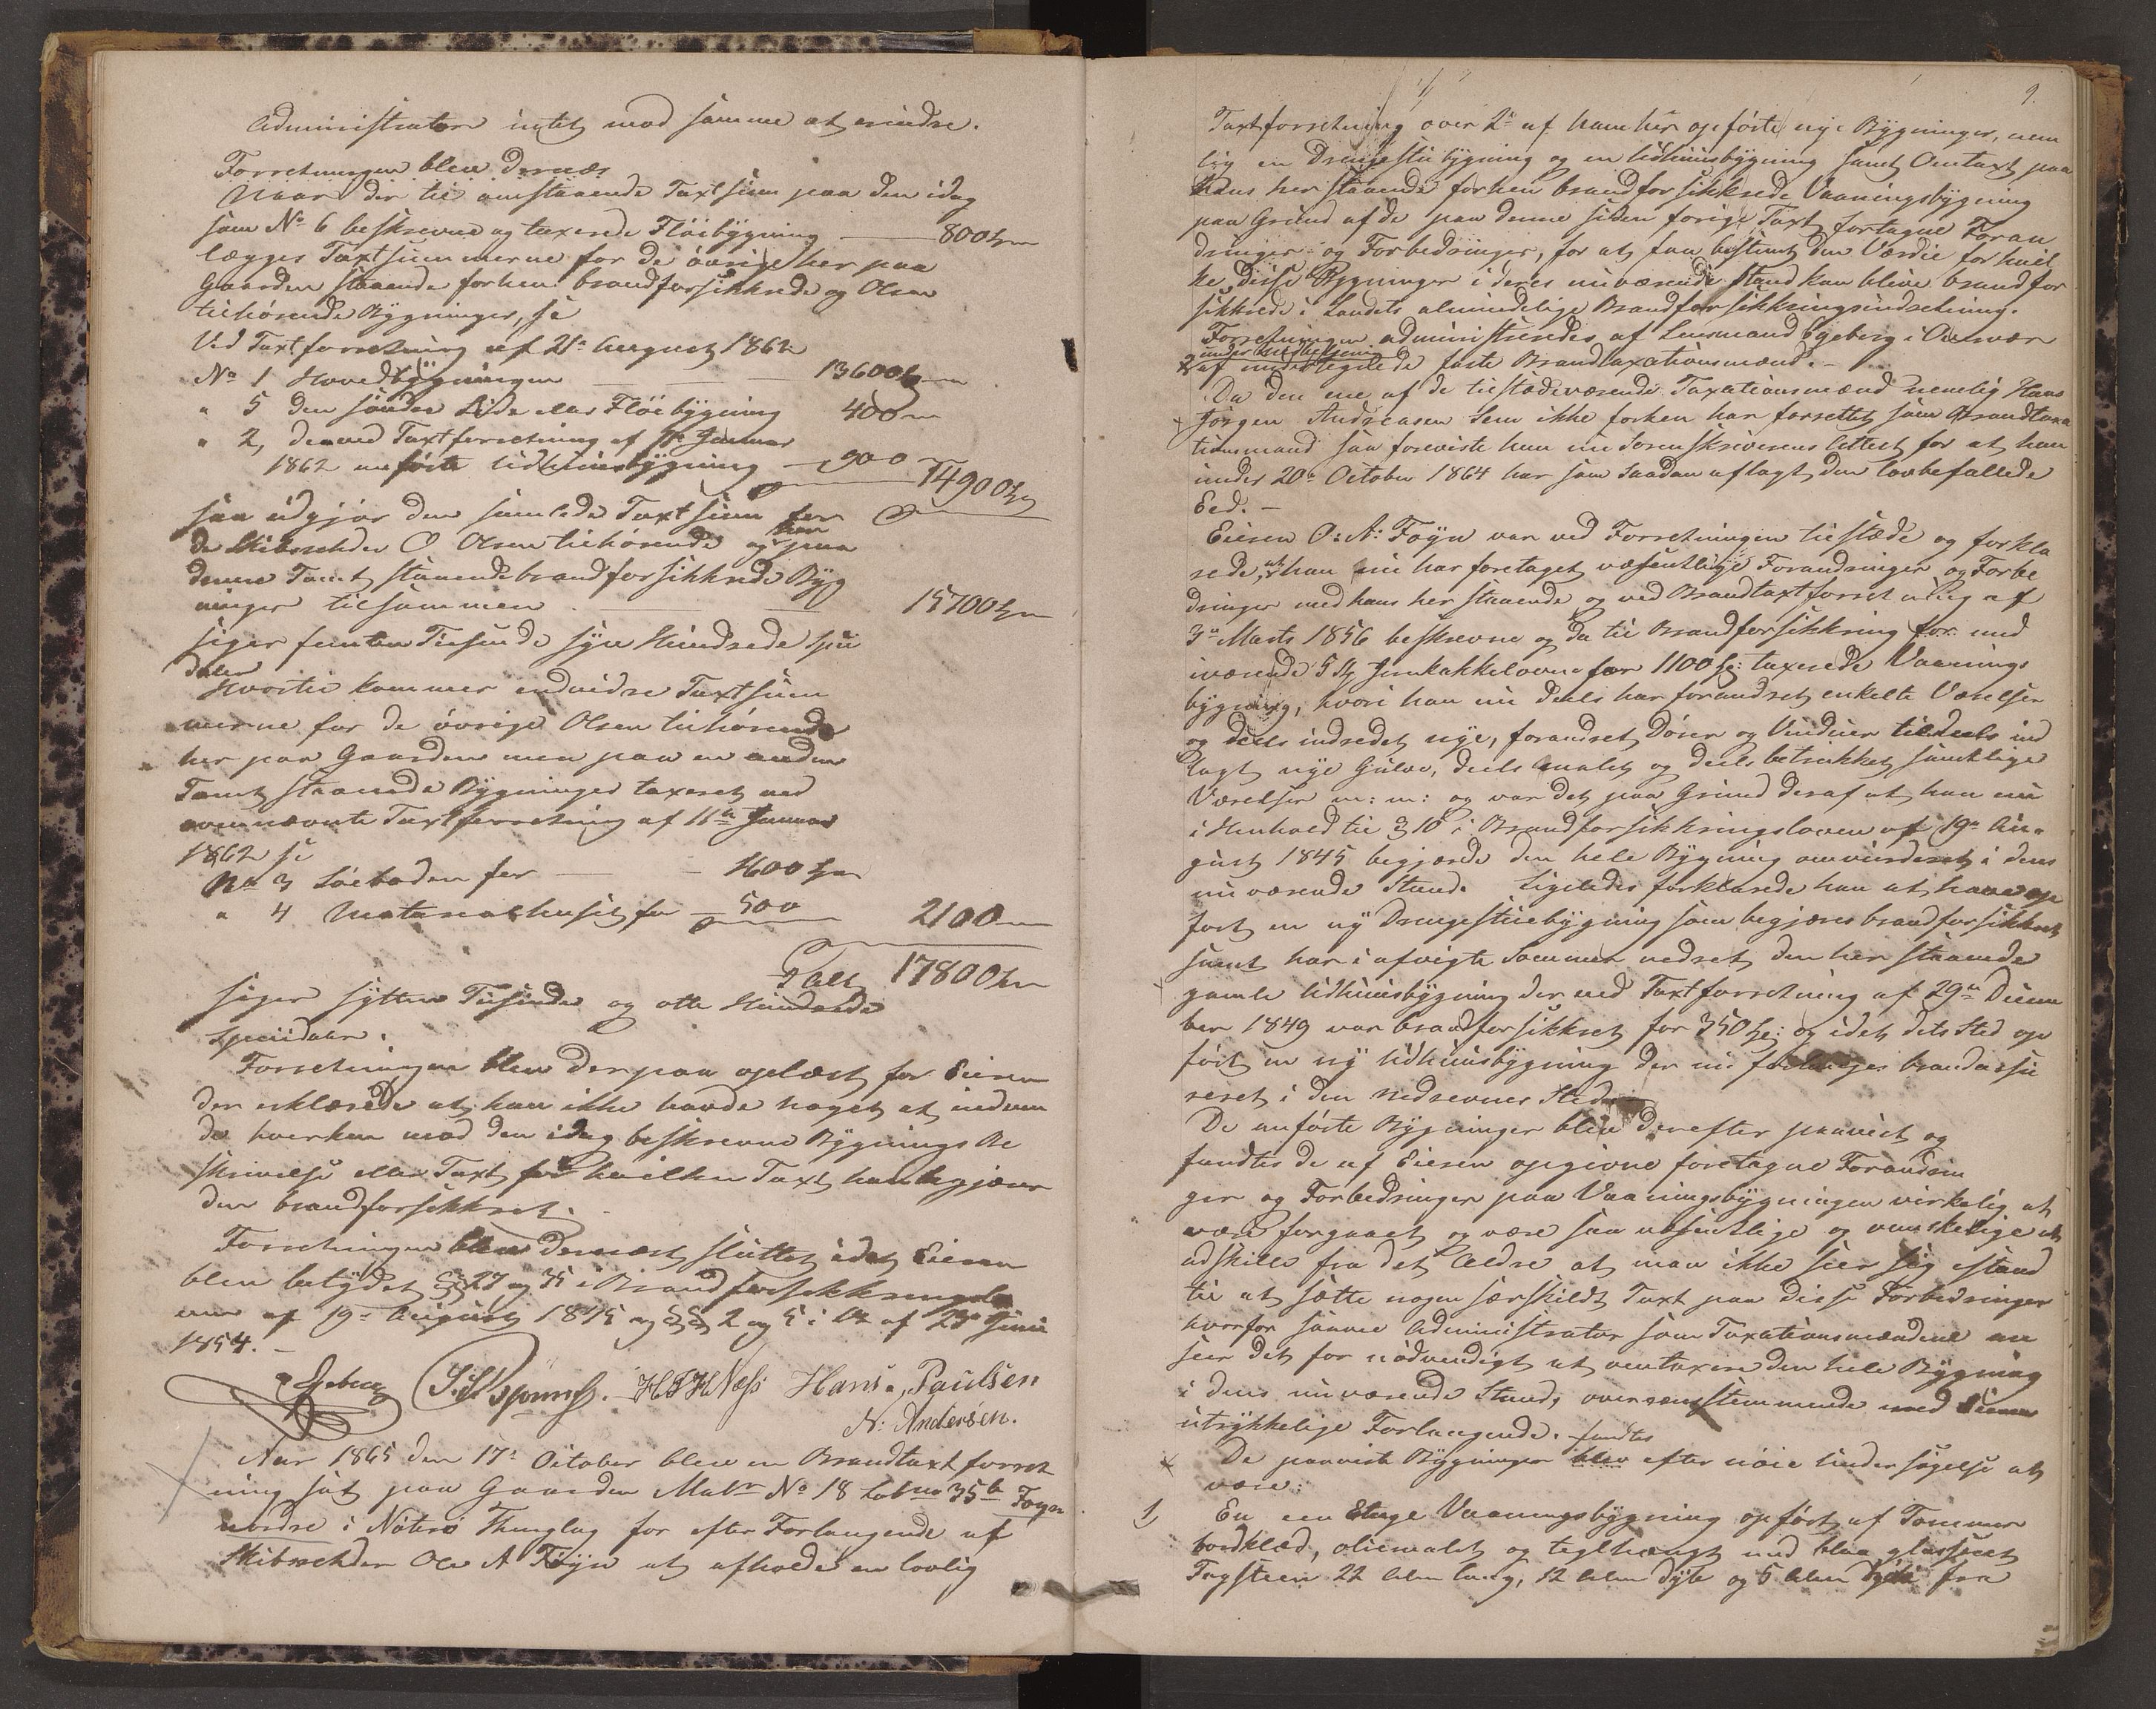 Administrator intet mod samme at erindre.
Forretningen blev dernæs
Naar der til omstaaende Taxtsum paa den idag
som No 6 beskrevne og taxerede Fløibygning 800
lægges Taxtsummerne for de øvrige her paa
Gaarden staaende forhen brandforsikkrede og Olsen
tilhørende Bygninger, se
Ved Taxtforretning af 21de August 1862
No 1 Hovedbygningen 13600
" 5 den søndre Side eller Fløibygning 400
" 2, den ved Taxtforretning af 11te Januar
1862 anførte Udhuusbygning 900 14900
saa udgjør den samlede Taxtsum for
de Skibsrheder O Olsen tilhørende og her paa
denne Tomt staaende brandforsikkrede Byg
ninger tilsammen 15700
siger femten Tusinde syv Hundrede Spe
daler
Hvortil kommer endvidre Taxtsum
merne for de øvrige Olsen tilhørende
her paa Gaarden men paa en anden
Tomt staaende Bygninger taxeret ved
ovennævnte Taxtforretning af 11te Januar
1862 se
No 3 Søeboden for 1600
" 4 Materialhuset for 500 2100
Ialt 17800
siger sytten Tusinde og otte Hundrede
Speciedaler.
Forretningen blev derpaa oplæst for Eieren
der erklærede at han ikke havde noget at indven
de hverken mod den idag beskrevne Bygnings Be
skrivelse eller Taxt for hvilken Taxt han begjærer
den brandforsikkret.
Forretningen blev dernæst sluttet idet Eieren
blev betydet §§ 27 og 35 i Brandforsikkringslo
ven af 19de August 1845 og §§ 2 og 5 i Lov af 23de Juni
1854.
Egeberg H J H Næss Hans Paulsen
N: Andersen.
Aar 1865 den 17de October blev en Brandtaxtforret
ning sat paa Gaarden Matr No 18 Løbno 35b Føyn
nordre i Nøterø Thinglag for efter Forlangende af
Skibsrheder Ole A Føyn at afholde en lovlig
9.
Taxtforretning over 2de af ham her opførte nye Bygninger, nem
lig en Drengestubygning og en Udhuusbygning samt Omtaxt paa
hans her staaende forhen brandforsikkrede Vaaningsbygning
paa Grund af de paa denne siden forige Taxt foretagne Foran
dringer og Forbedringer, for at faa bestemt den Værdie for hvil
ke disse Bygninger i deres nuværende Stand kan blive brandfor
sikkrede i Landets almindelige Brandforsikkringsindretning.
Forretningen administreredes af Lensmand Egeberg i Overvær
af undertegnede faste Brandtaxationsmænd.
Da den ene af de tilstædeværende Taxationsmænd nemlig Hans
Jørgen Andreasen Sem ikke forhen har forrettet som Brandtaxa
tionsmand saa foreviste han nu Sorenskriverens Attest for at han
under 20de October 1864 har som saadan aflagt den lovbefallede
Eed.
Eieren O: A: Føyn var ved Forretningen tilstæde og forkla
rede, at han nu har foretaget væsentlige Forandringer og Forbe
dringer med hans her staaende og ved Brandtaxtforretning af
3de Marts 1856 beskrevne og da til Brandforsikkring for med
iværende 5 St Jernkakkelovne for 1100 taxerede Vaanings
bygning, hvori han nu deels har forandret enkelte Værelser
og deels indredet nye, forandret Døre og Vinduer tildeels ind
lagt nye Gulve, deels malet og deels betrukket samtlige
Værelser m: m: og var det paa Grund deraf at han nu
i Henhold til § 10 i Brandforsikkringsloven af 19de Au
gust 1845 begjærede den hele Bygning omvurderet i dens
nuværende Stand. Ligeledes forklarede han at have op
ført en ny Drengestuebygning som begjæres brandforsikkret
samt har i afvigte Sommer nedrevet den her staaende
gamle Udhuusbygning der ved Taxtforretning af 29de Decem
ber 1849 var brandforsikkret for 350 og idet dets Sted op
ført en ny Udhuusbygning der nu forlanges brandassu
reret i den nedrevnes Sted.
De anførte Bygninger blev derefter paavist og
fandtes de af Eieren opgivne foretagne Forandrin
ger og Forbedringer paa Vaaningsbygningen virkelig at
være foregaaet og være saa væsentlige og vanskelige at
adskille fra det Ældre at man ikke seer sig istand
til at sætte nogen særskildt Taxt paa disse Forbedringer
hvorfor saavel Administrator som Taxationsmændene an
seer det for nødvendigt at omtaxere den hele Bygning
i dens nuværende Stand, overensstemmende med Eierens
utrykkelige Forlangende. fandtes
De paaviste Bygninger blev efter nøie Undersøgelse at
være:
1 En een Etage Vaaningsbygning opført af Tømmer
bordklæd, oliemalet og teglhængt med blaa glasseret
Tagsteen 22 Alen lang, 12 Alen dyb og 5 Alen høi fra